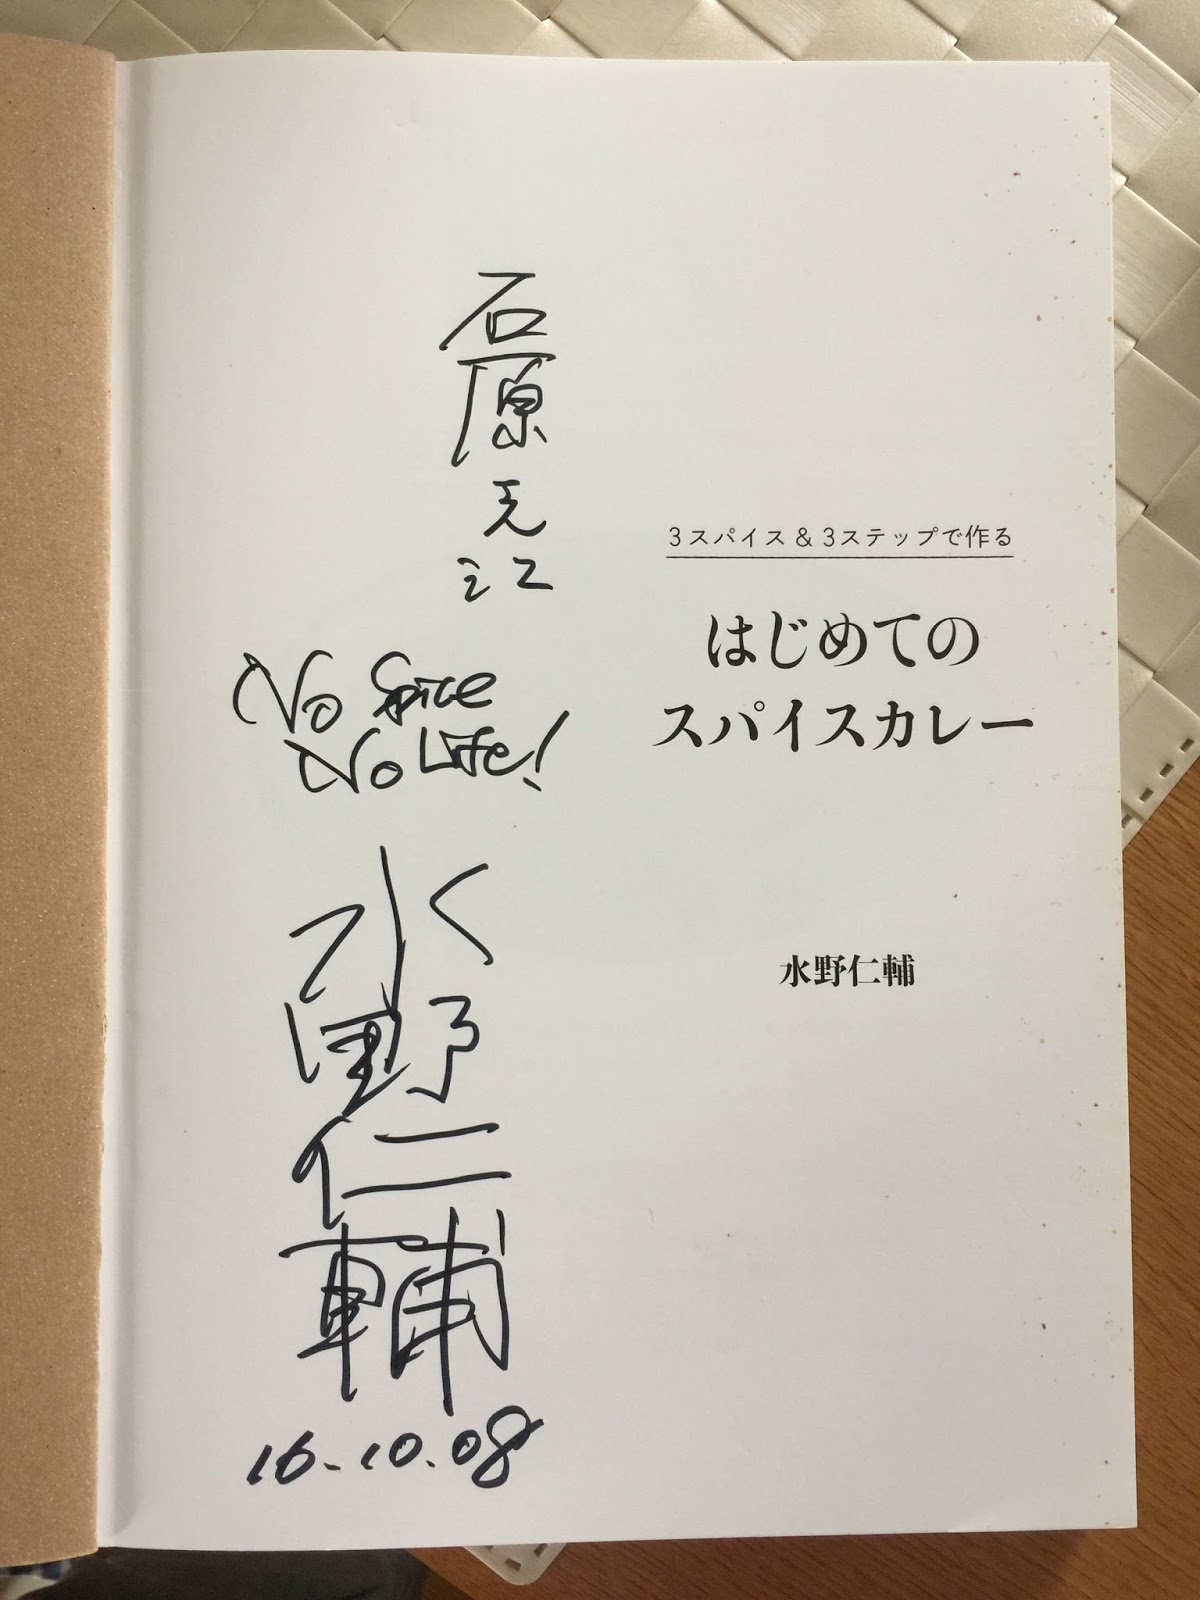 石原
No Spice
No Life!
水野仁輔
16.10.08
3スパイス&3ステップで作る
はじめての
スパイスカレー
水野仁輔